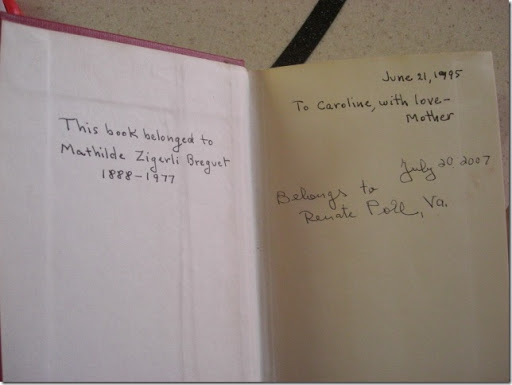 This book belonged to
Mathilde Zigerli Breguet
1888-1977
June 21, 1995
To Caroline, with love-
Mother
July 20 2007
Belongs to
Renate Poll, Va.